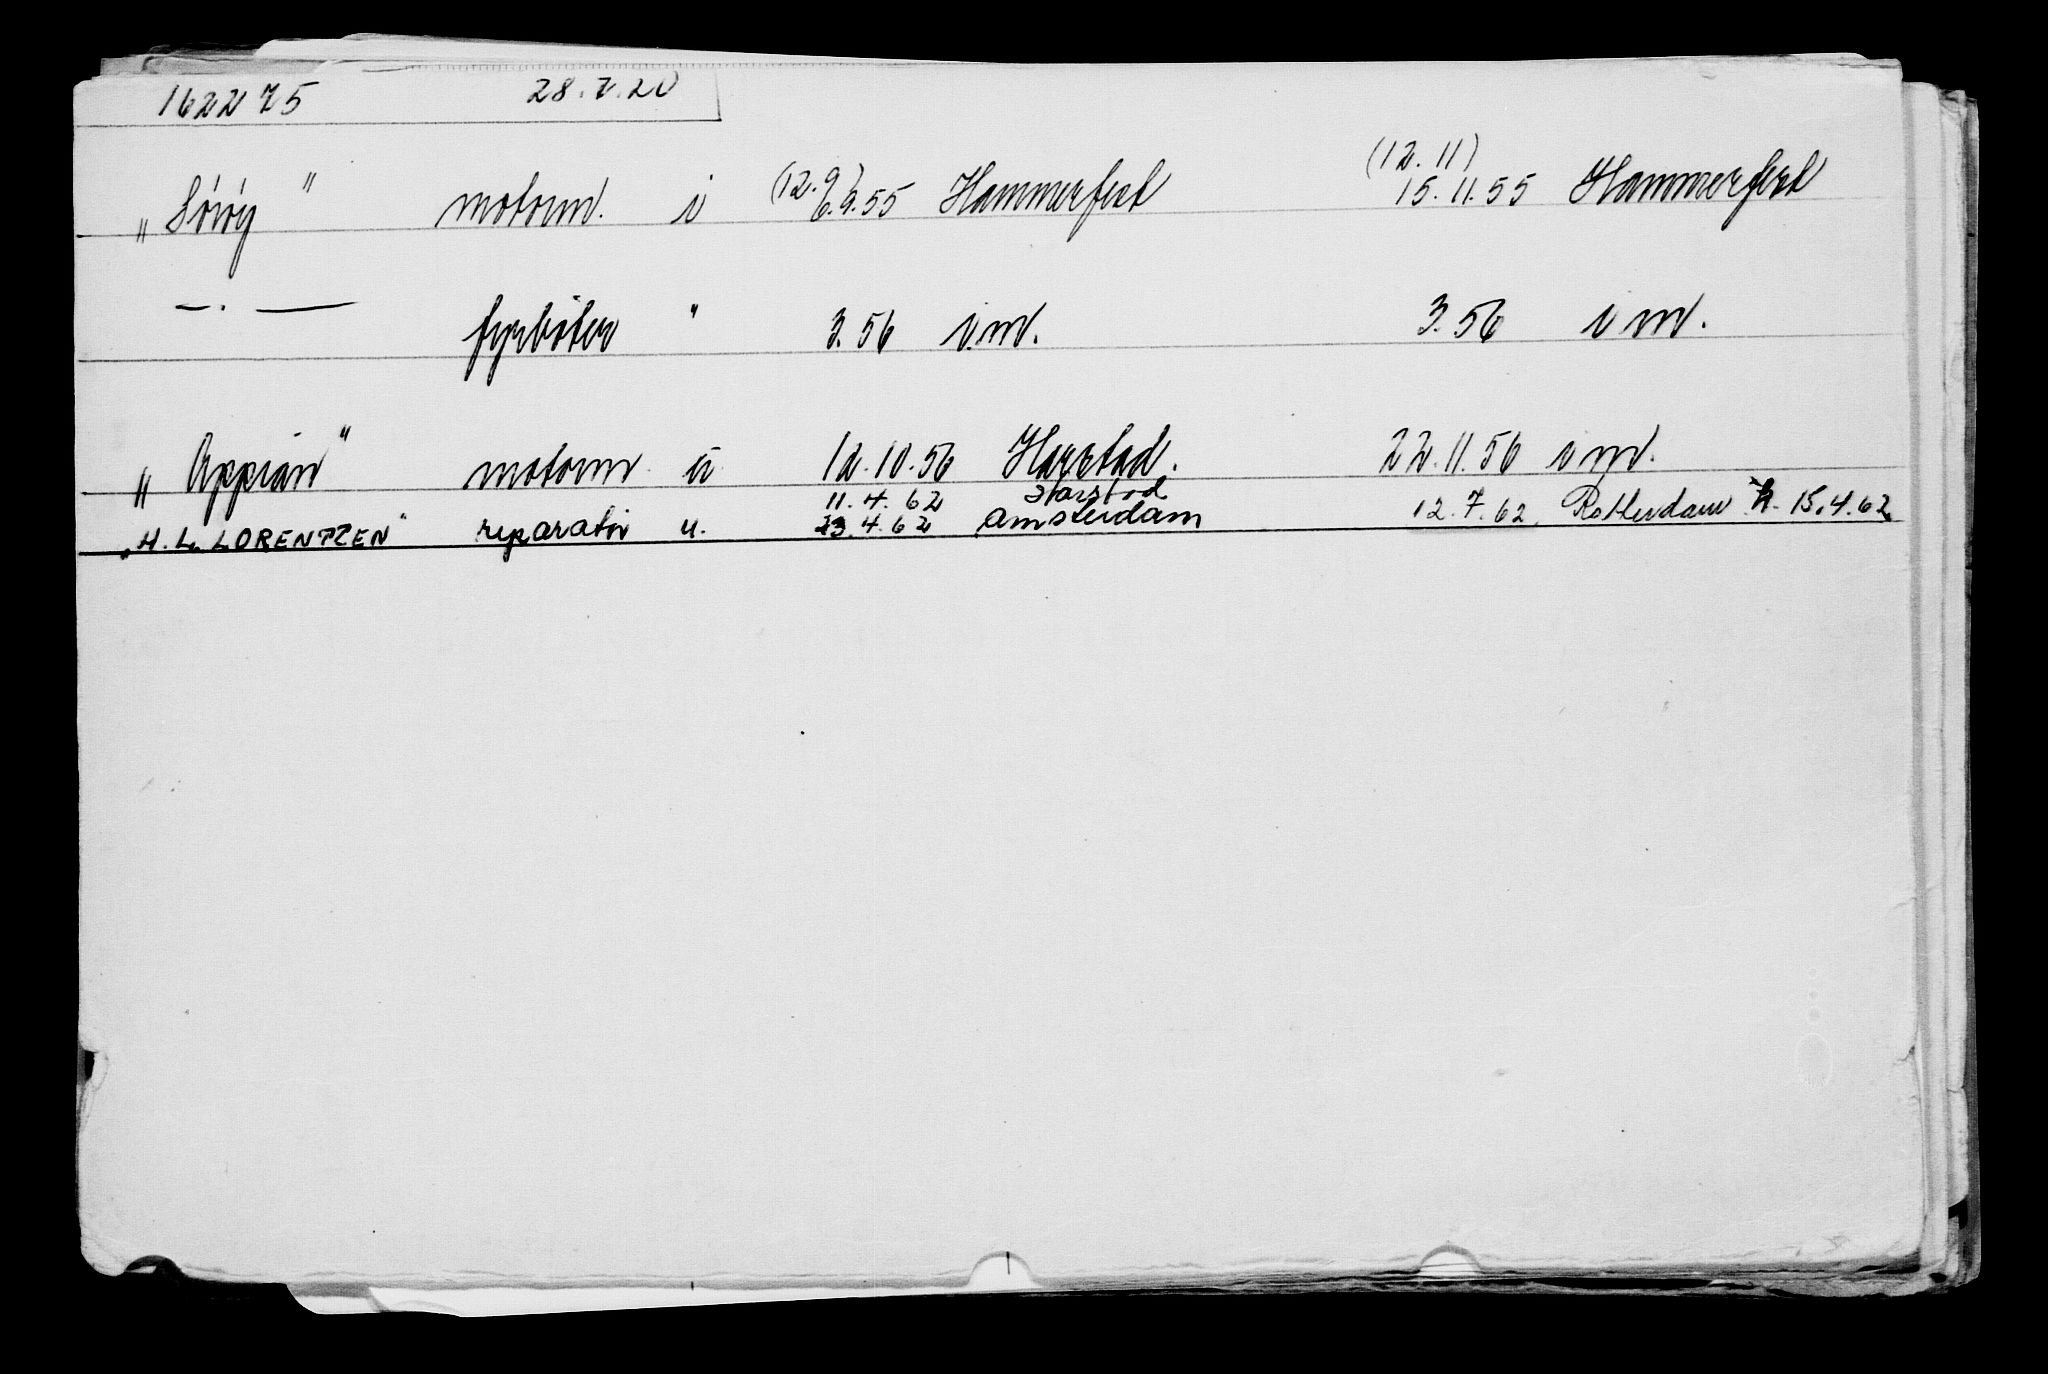 162275 28.7.20
(12.9) (12.11)
„Sörøy" motorm. i 6.9.55 Hammerfest 15.11.55 Hammerfest
—.— fyrbøter " 3.56 i.m. 3.56 i m.
„Appian" motorm. u 12.10.56 Harstad. 22.11.56 i m.
11.4.62 Harstad
„H. L. LORENTZEN" reparatør u. 13.4.62 Amsterdam 12.7.62 Rotterdam h. 15.4.62